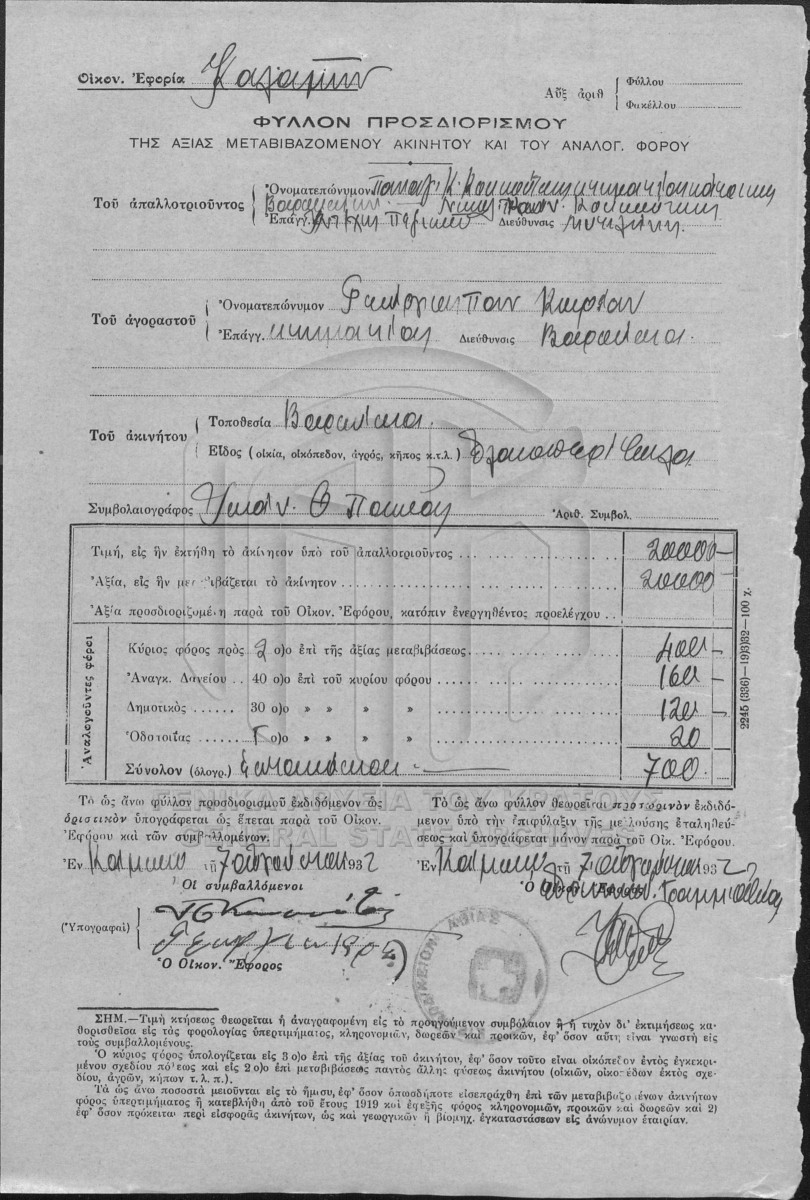 Οἰκον. Ἐφορία Καλαμῶν
Αὔξ ἀριθ { Φύλλου
Φακέλλου
ΦΥΛΛΟΝ ΠΡΟΣΔΙΟΡΙΣΜΟΥ
ΤΗΣ ΑΞΙΑΣ ΜΕΤΑΒΙΒΑΖΟΜΕΝΟΥ ΑΚΙΝΗΤΟΥ ΚΑΙ ΤΟΥ ΑΝΑΛΟΓ. ΦΟΡΟΥ
Τοῦ ἀπαλλοτριοῦντος
Ὀνοματεπώνυμον
Ἐπάγγ. Διεύθυνσις
Τοῦ ἀγοραστοῦ
Ὀνοματεπώνυμον
Ἐπάγγ. κτηματίας Διεύθυνσις
Τοῦ ἀκινήτου
Τοποθεσία
Εἶδος (οἰκία, οἰκόπεδον, ἀγρός, κῆπος κ.τ.λ.)
Συμβολαιογράφος Ἀριθ. Συμβολ.
Τιμή, εἰς ἣν ἐκτήθη τὸ ἀκίνητον ὑπὸ τοῦ ἀπαλλοτριοῦντος 20000 —
Ἀξία, εἰς ἣν με ιβάζεται τὸ ἀκίνητον 20000
Ἀξία προσδιοριζομένη παρὰ τοῦ Οἰκον. Ἐφόρου, κατόπιν ἐνεργηθέντος προελέγχου
Ἀναλογοῦντες φόροι
Κύριος φόρος πρὸς 2 ο)ο ἐπὶ τῆς ἀξίας μεταβιβάσεως 400 —
Ἀναγκ. Δανείου 40 ο)ο ἐπὶ τοῦ κυρίου φόρου 160 —
Δημοτικὸς 30 ο)ο » » » » 120 —
Ὁδοποιΐας 5 ο)ο » » » » 20
Σύνολον (ὁλογρ.) Ἑπτακόσιαι 700.
2245 (336)—19)3)32—100 χ.
ΓΕΝΙΚΑ ΑΡΧΕΙΑ ΤΟΥ ΚΡΑΤΟΥΣ
GENERAL STATE ARCHIVES
Τὸ ὡς ἄνω φύλλον προσδιορισμοῦ ἐκδιδόμενον ὡς
ὁριστικὸν ὑπογράφεται ὡς ἕπεται παρὰ τοῦ Οἰκον.
Ἐφόρου καὶ τῶν συμβαλλομένων.
Ἐν τῇ 7 Αὐγούστου 1932
Οἱ συμβαλλόμενοι
(Ὑπογραφαὶ)
Ὁ Οἰκον. Ἔφορος
Τὸ ὡς ἄνω φύλλον θεωρεῖται προσωρινὸν ἐκδιδό-
μενον ὑπὸ τὴν ἐπιφύλαξιν τῆς μελλούσης ἐπαληθεύ-
σεως καὶ ὑπογράφεται μόνον παρὰ τοῦ Οἰκ. Ἐφόρου.
Ἐν τῇ 7 Αὐγούστου 1932
Ὁ Οἰκον. Ἔφορος
ΣΗΜ.—Τιμὴ κτήσεως θεωρεῖται ἡ ἀναγραφομένη εἰς τὸ προηγούμενον συμβόλαιον ἢ ἡ τυχὸν δι' ἐκτιμήσεως κα-
θορισθεῖσα εἰς τὰς φορολογίας ὑπερτιμήματος, κληρονομιῶν, δωρεῶν καὶ προικῶν, ἐφ' ὅσον αὕτη εἶναι γνωστὴ εἰς
τοὺς συμβαλλομένους.
Ὁ κύριος φόρος ὑπολογίζεται εἰς 3 ο)ο ἐπὶ τῆς ἀξίας τοῦ ἀκινήτου, ἐφ' ὅσον τοῦτο εἶναι οἰκόπεδον ἐντὸς ἐγκεκρι-
μένου σχεδίου πόλεως καὶ εἰς 2 ο)ο ἐπὶ μεταβιβάσεως παντὸς ἄλλης φύσεως ἀκινήτου (οἰκιῶν, οἰκοπέδων ἐκτὸς σχε-
δίου, ἀγρῶν, κήπων τ. λ. π.).
Τὰ ὡς ἄνω ποσοστὰ μειοῦνται εἰς τὸ ἥμισυ, ἐφ' ὅσον ὁπωσδήποτε εἰσεπράχθη ἐπὶ τῶν μεταβιβαζομένων ἀκινήτων
φόρος ὑπερτιμήματος ἢ κατεβλήθη ἀπὸ τοῦ ἔτους 1919 καὶ ἐφεξῆς φόρος κληρονομιῶν, προικῶν καὶ δωρεῶν καὶ 2)
ἐφ' ὅσον πρόκειται περὶ εἰσφορᾶς ἀκινήτων, ὡς καὶ γεωργικῶν ἢ βιομηχ. ἐγκαταστάσεων εἰς ἀνώνυμον ἑταιρίαν.